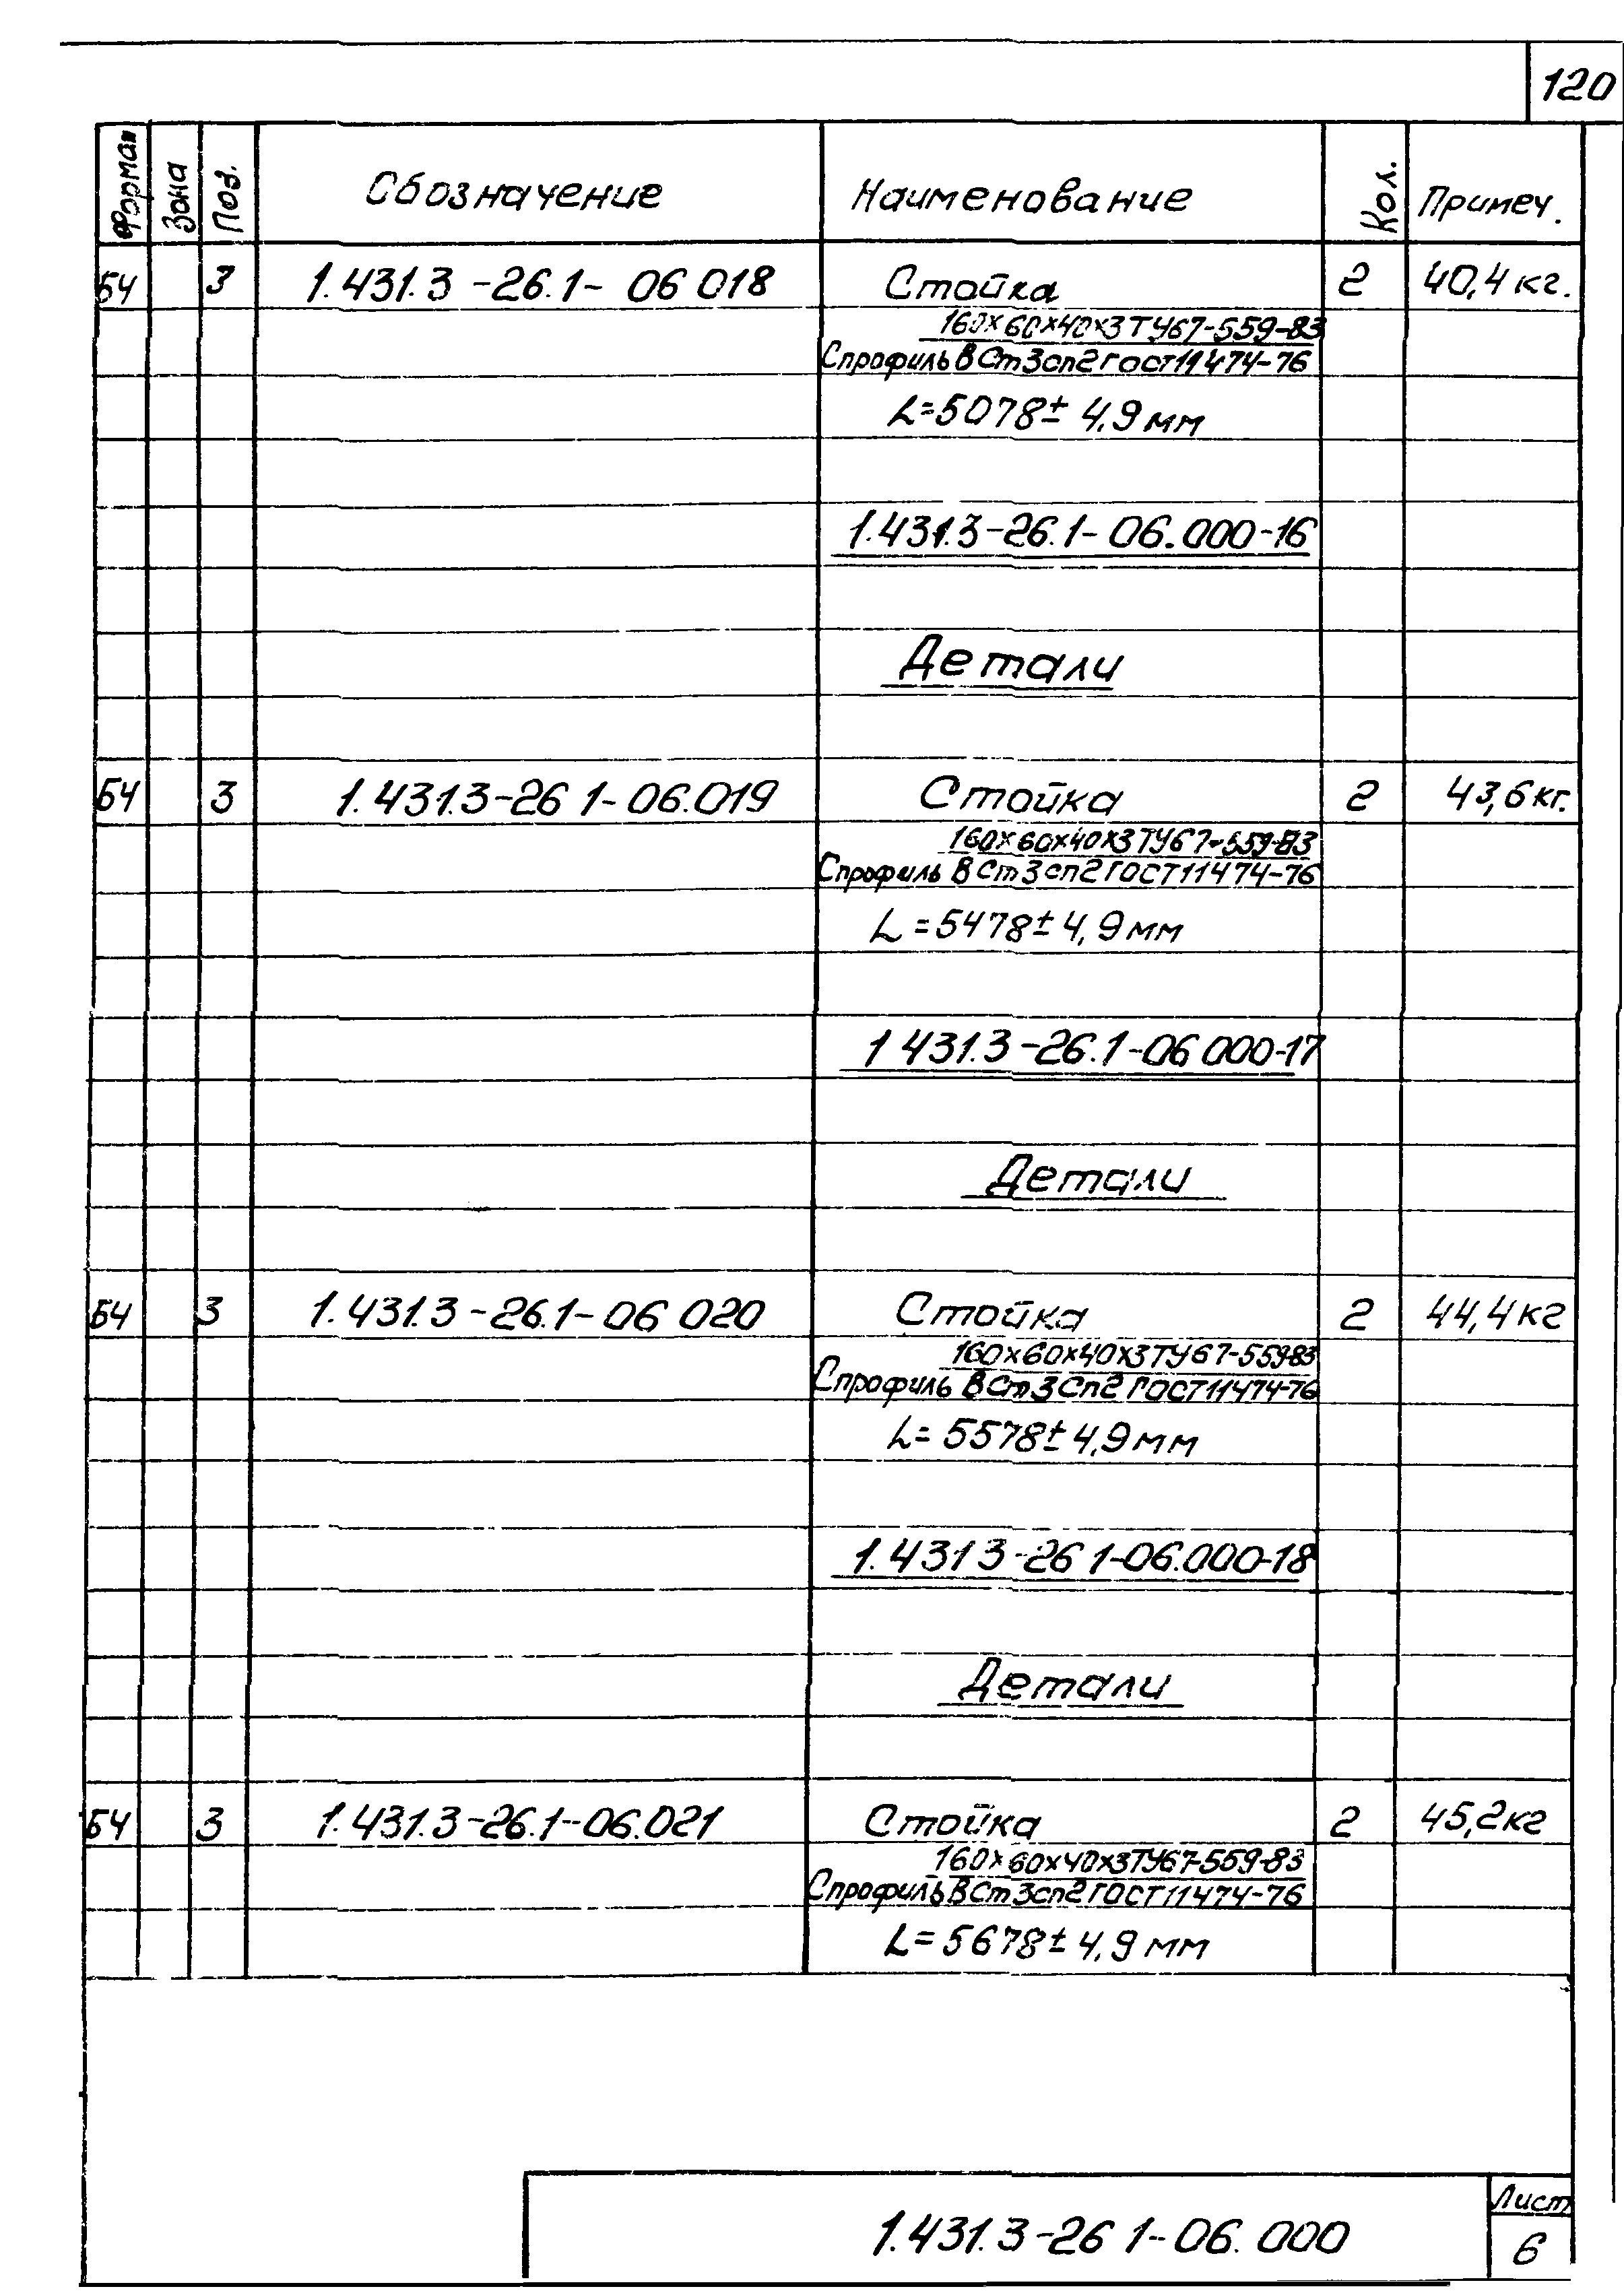 120
Формат Зона Поз. Обозначение Наименование Кол. Примеч.
БЧ 3 1.431.3-26.1- 06 018 Стойка 2 40,4 кг.
160×60×40×3 ТУ67-559-83
Спрофиль ВСт3сп2 ГОСТ11474-76
L=5078± 4,9 мм
1.431.3-26.1-06.000-16
Детали
БЧ 3 1.431.3-26 1-06.019 Стойка 2 43,6 кг.
160×60×40×3 ТУ67-559-83
Спрофиль ВСт3сп2 ГОСТ11474-76
L=5478± 4,9 мм
1 431.3-26.1-06 000-17
Детали
БЧ 3 1.431.3-26.1-06 020 Стойка 2 44,4 кг
160×60×40×3 ТУ67-559-83
Спрофиль ВСт3Сп2 ГОСТ11474-76
L= 5578± 4,9 мм
1.431 3-26 1-06.000-18
Детали
БЧ 3 1.431.3-26.1-06.021 Стойка 2 45,2 кг
160×60×40×3 ТУ67-559-83
Спрофиль ВСт3сп2 ГОСТ11474-76
L= 5678± 4,9 мм
1.431.3-26 1-06. 000
Лист
6